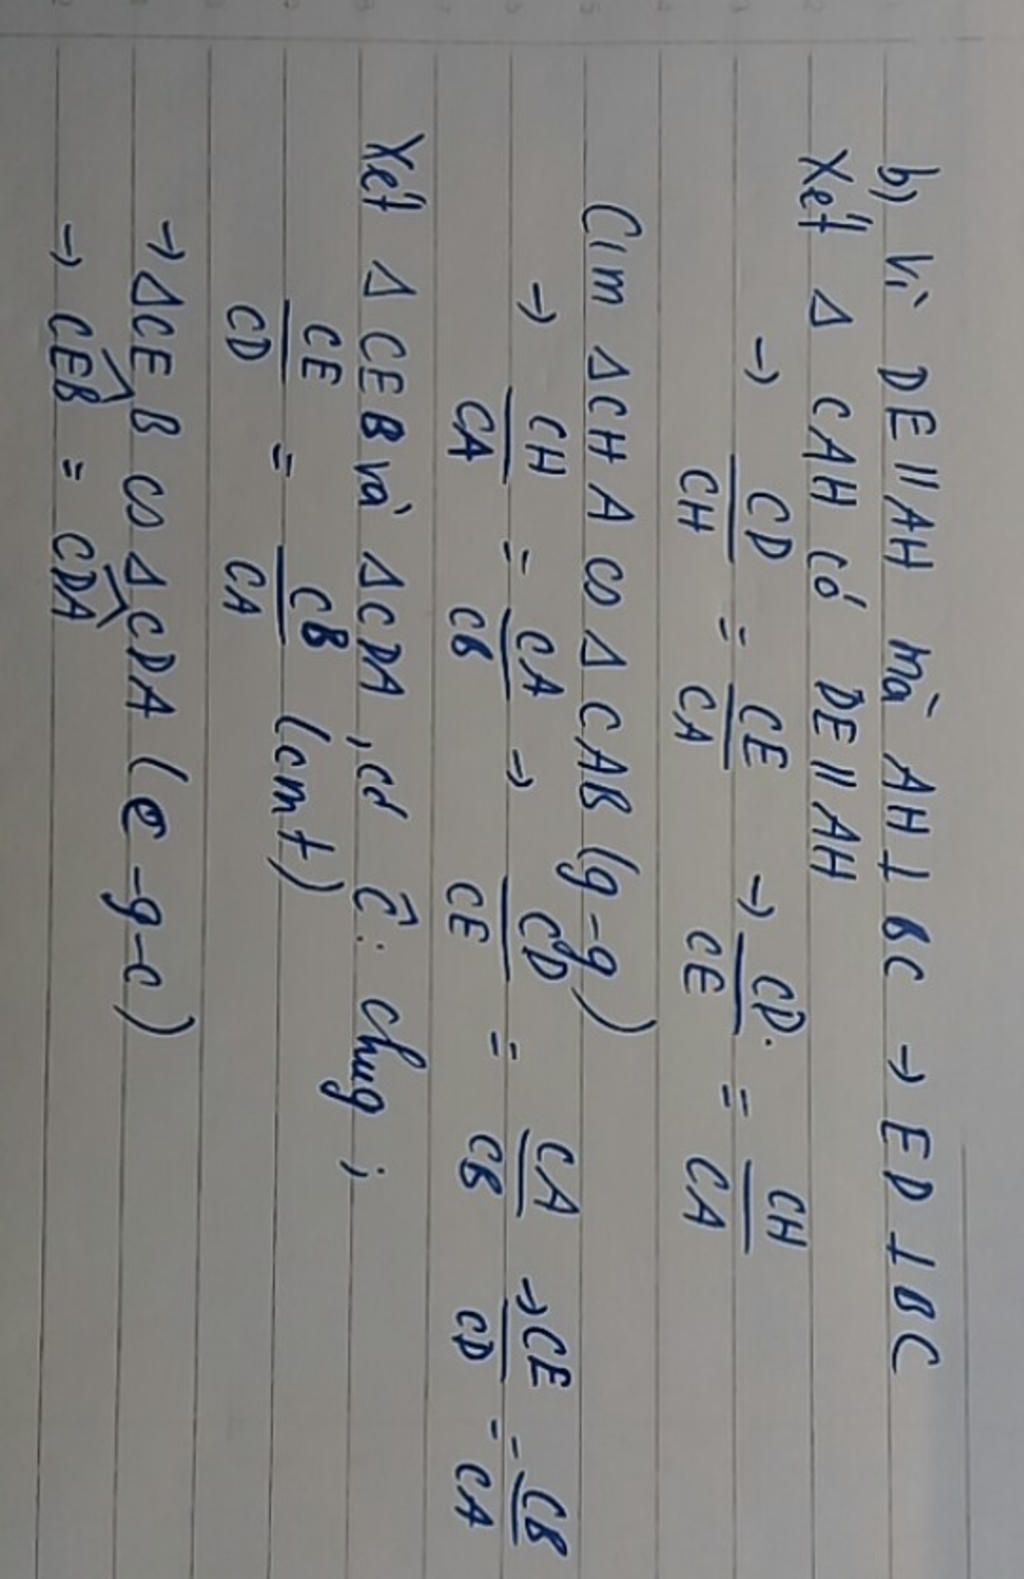 b) Vì DE // AH mà AH ⊥ BC → ED ⊥ BC
Xét Δ CAH có DE // AH
→ CD/CH = CE/CA → CD/CE = CH/CA
C/m ΔCHA ∽ Δ CAB (g-g)
→ CH/CA = CA/CB → CD/CE = CA/CB → CE/CD = CB/CA
Xét Δ CEB và ΔCDA, có Ĉ: chug;
CE/CD = CB/CA (cmt)
→ ΔCEB ∽ ΔCDA (c-g-c)
→ CEB̂ = CDÂ